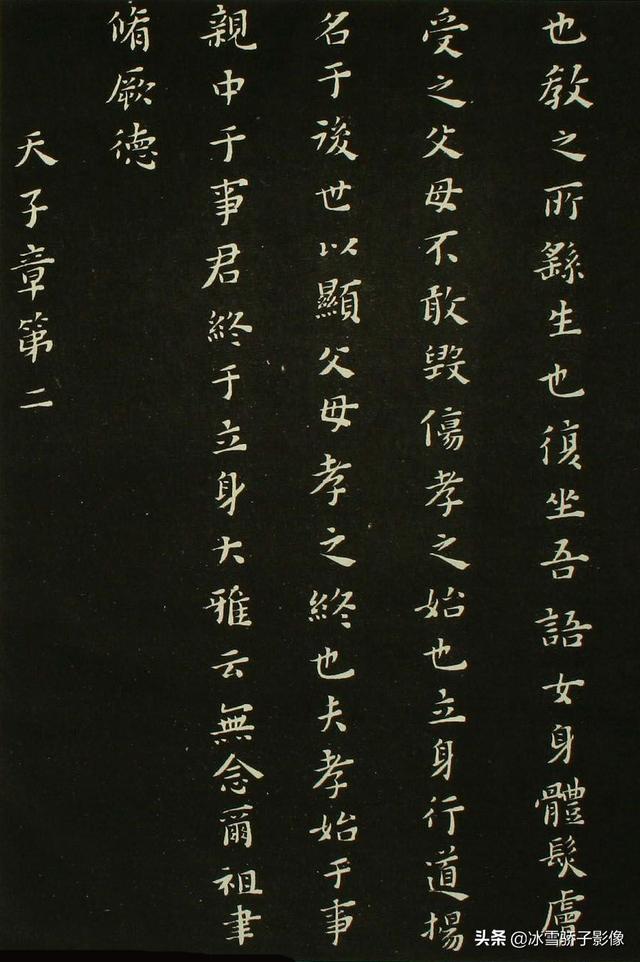 也教之所繇生也復坐吾語女身體髮膚
受之父母不敢毀傷孝之始也立身行道揚
名于後世以顯父母孝之終也夫孝始于事
親中于事君終于立身大雅云無念爾祖聿
脩厥德
天子章第二
头条 @冰雪骄子影像